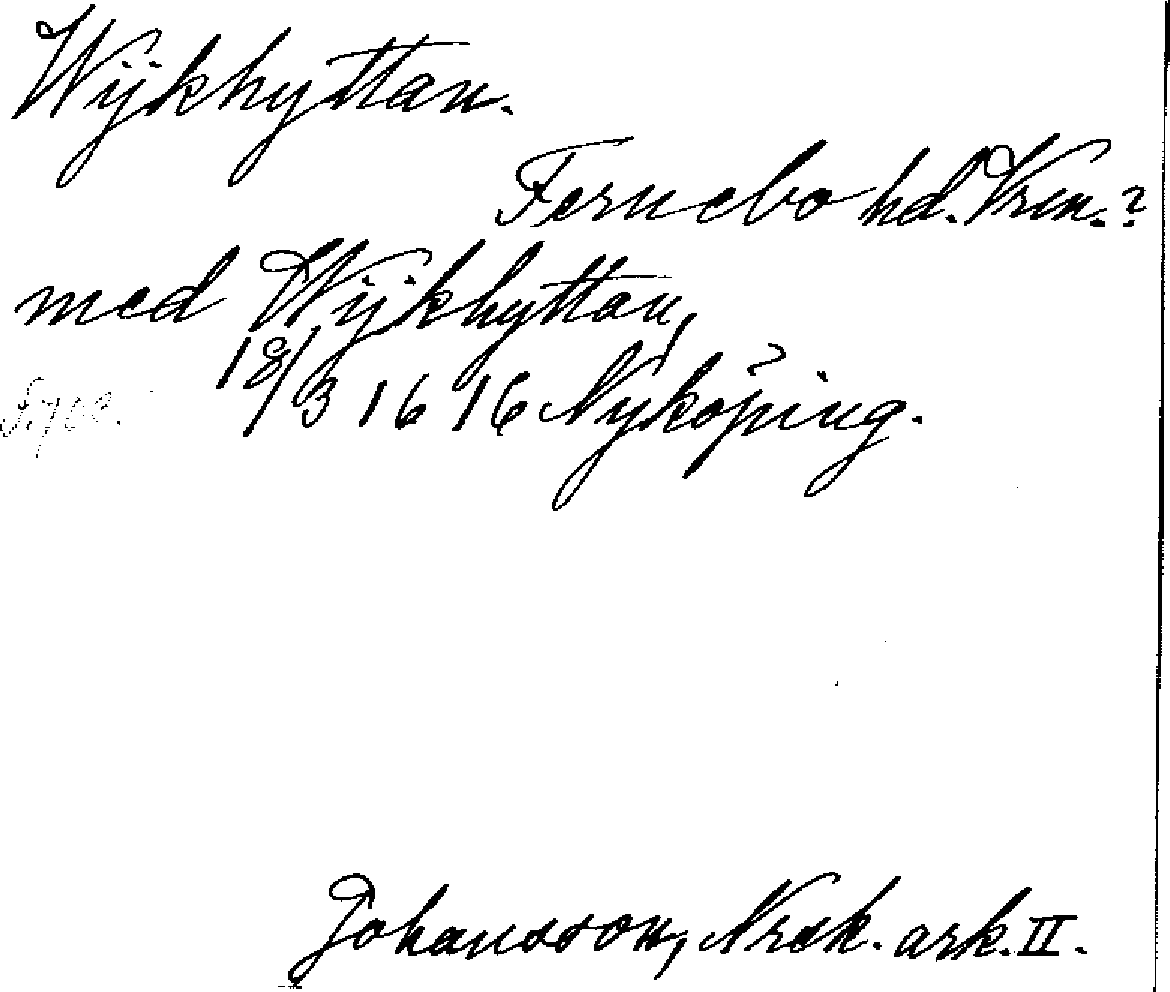 Wijkhyttan.
Fernebo hd. Vrm.?
med Wijkhyttan,
18/3 1616 Nyköping.
Johansson, Nrsk. ark. II.